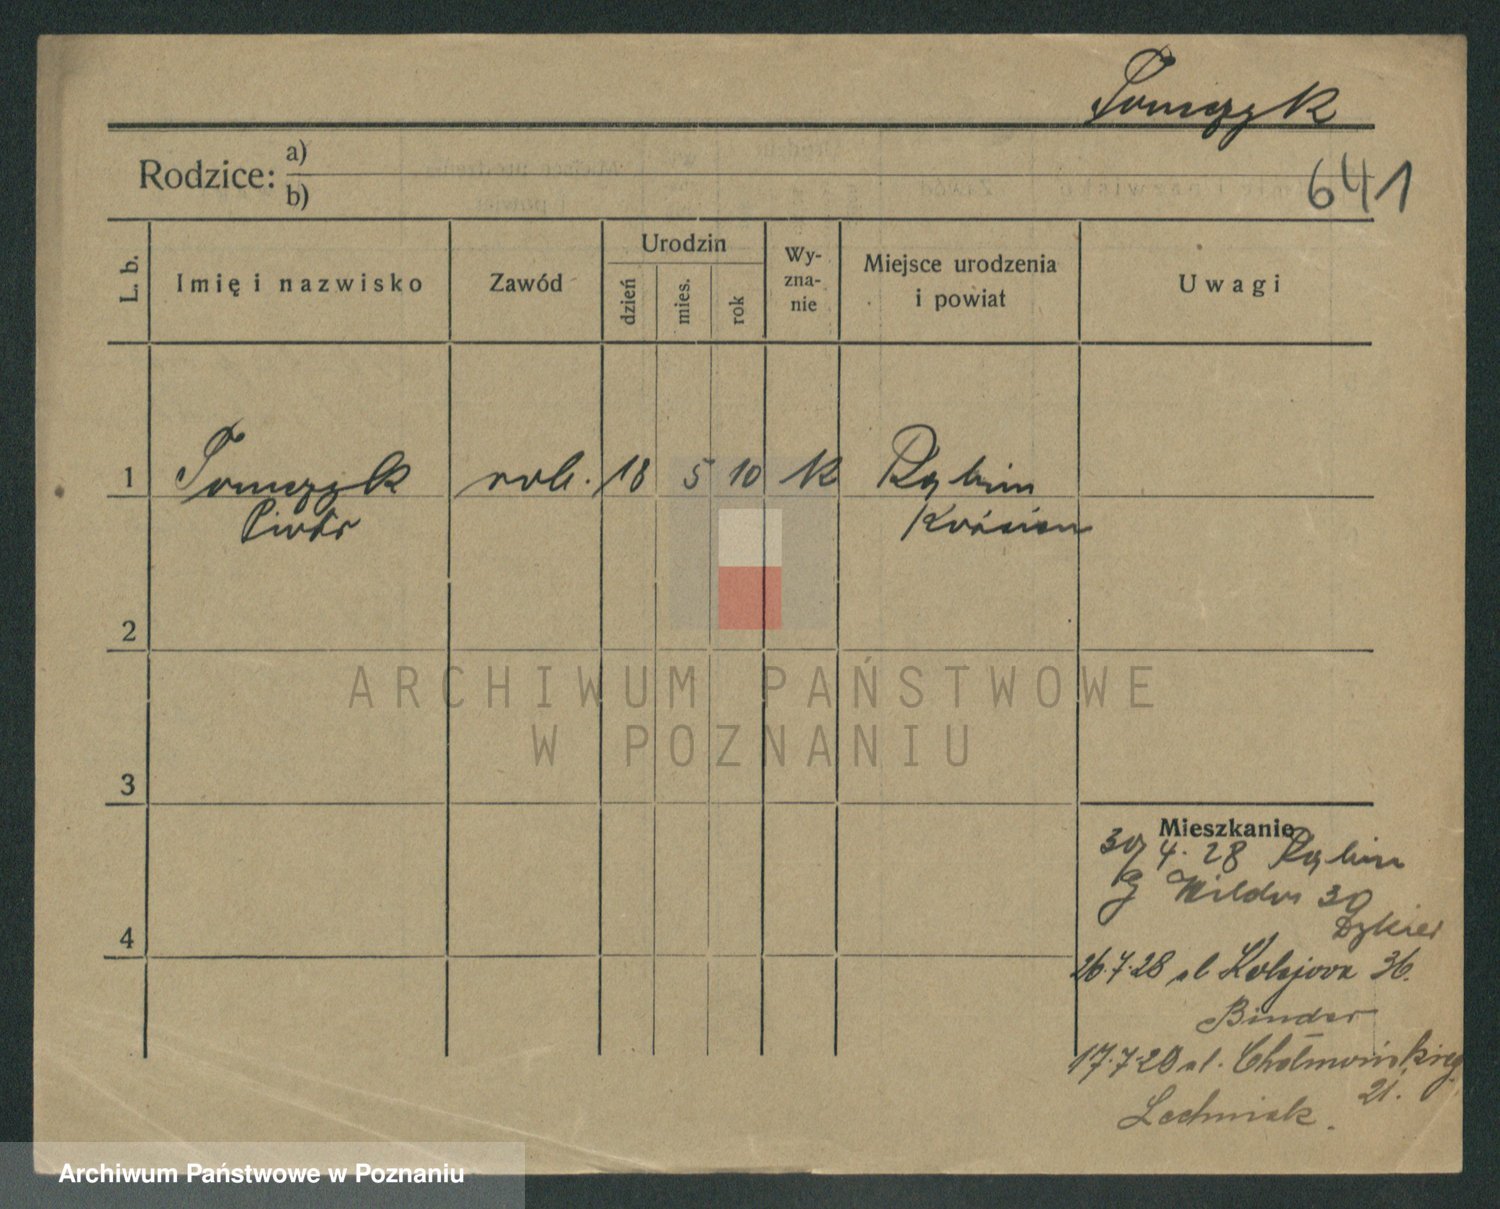 Tomczyk
Rodzice: a)
b)
641
L. b.
Imię i nazwisko
Zawód
Urodzin
dzień
mies.
rok
Wy-
zna-
nie
Miejsce urodzenia
i powiat
Uwagi
1
Tomczyk
Piotr
rob.
18
5
10
K
Rąbin
Kościan
2
3
4
Mieszkanie
30 4. 28 Rąbin
G Wilda 30
26.7.28 ul Kolejowa 36.
Binder
17.7.28 ul.
21.
Lechniak.
ARCHIWUM PAŃSTWOWE
W POZNANIU
Archiwum Państwowe w Poznaniu